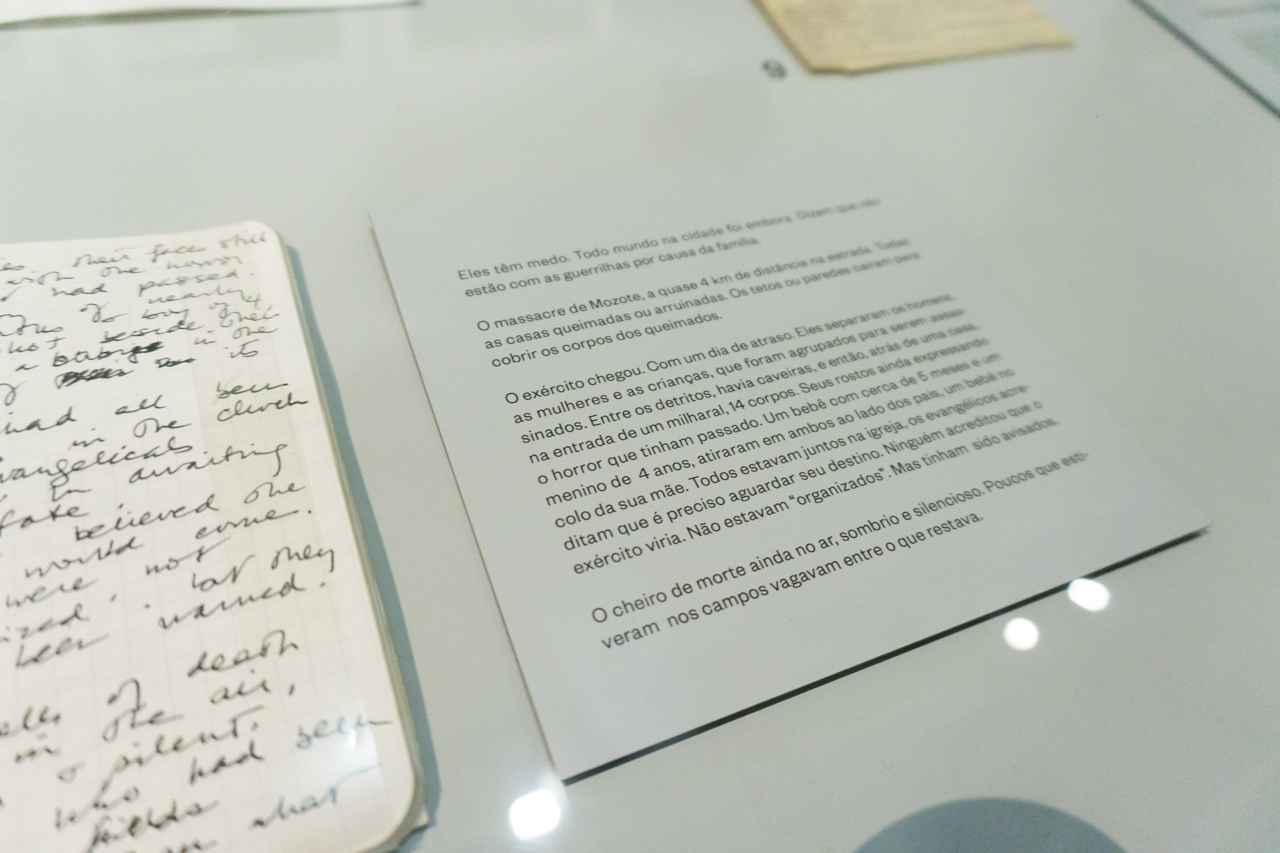 their face still
the horror
had passed.
nearly
boy of 4,
beside their
in the
its
had all been
in the church
vangelicals
in awaiting
fate
believed the
would come.
were not
but they
been warned.
of death
in the air,
silent.
who had seen
fields what
9
Eles têm medo. Todo mundo na cidade foi embora. Dizem que não
estão com as guerrilhas por causa da família.
O massacre de Mozote, a quase 4 km de distância na estrada. Todas
as casas queimadas ou arruinadas. Os tetos ou paredes cairam para
cobrir os corpos dos queimados.
O exército chegou. Com um dia de atraso. Eles separaram os homens,
as mulheres e as crianças, que foram agrupados para serem assas-
sinados. Entre os detritos, havia caveiras, e então, atrás de uma casa,
na entrada de um milharal, 14 corpos. Seus rostos ainda expressando
o horror que tinham passado. Um bebê com cerca de 5 meses e um
menino de 4 anos, atiraram em ambos ao lado dos pais, um bebê no
colo da sua mãe. Todos estavam juntos na igreja, os evangélicos acre-
ditam que é preciso aguardar seu destino. Ninguém acreditou que o
exército viria. Não estavam “organizados”. Mas tinham sido avisados.
O cheiro de morte ainda no ar, sombrio e silencioso. Poucos que esti-
veram nos campos vagavam entre o que restava.